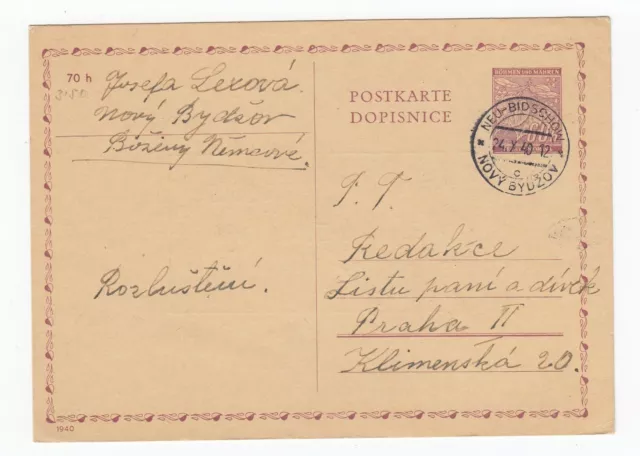 70 h
Josefa Lexová.
Nový Bydžov
Boženy Němcové
Rozluštění.
BÖHMEN UND MÄHREN
POSTKARTE
DOPISNICE
60
NEU-BIDSCHOW
24.X.40-12
C
NOVÝ BYDŽOV
P. T.
Redakce
Listu paní a dívek
Praha II
Klimenská 20.
1940